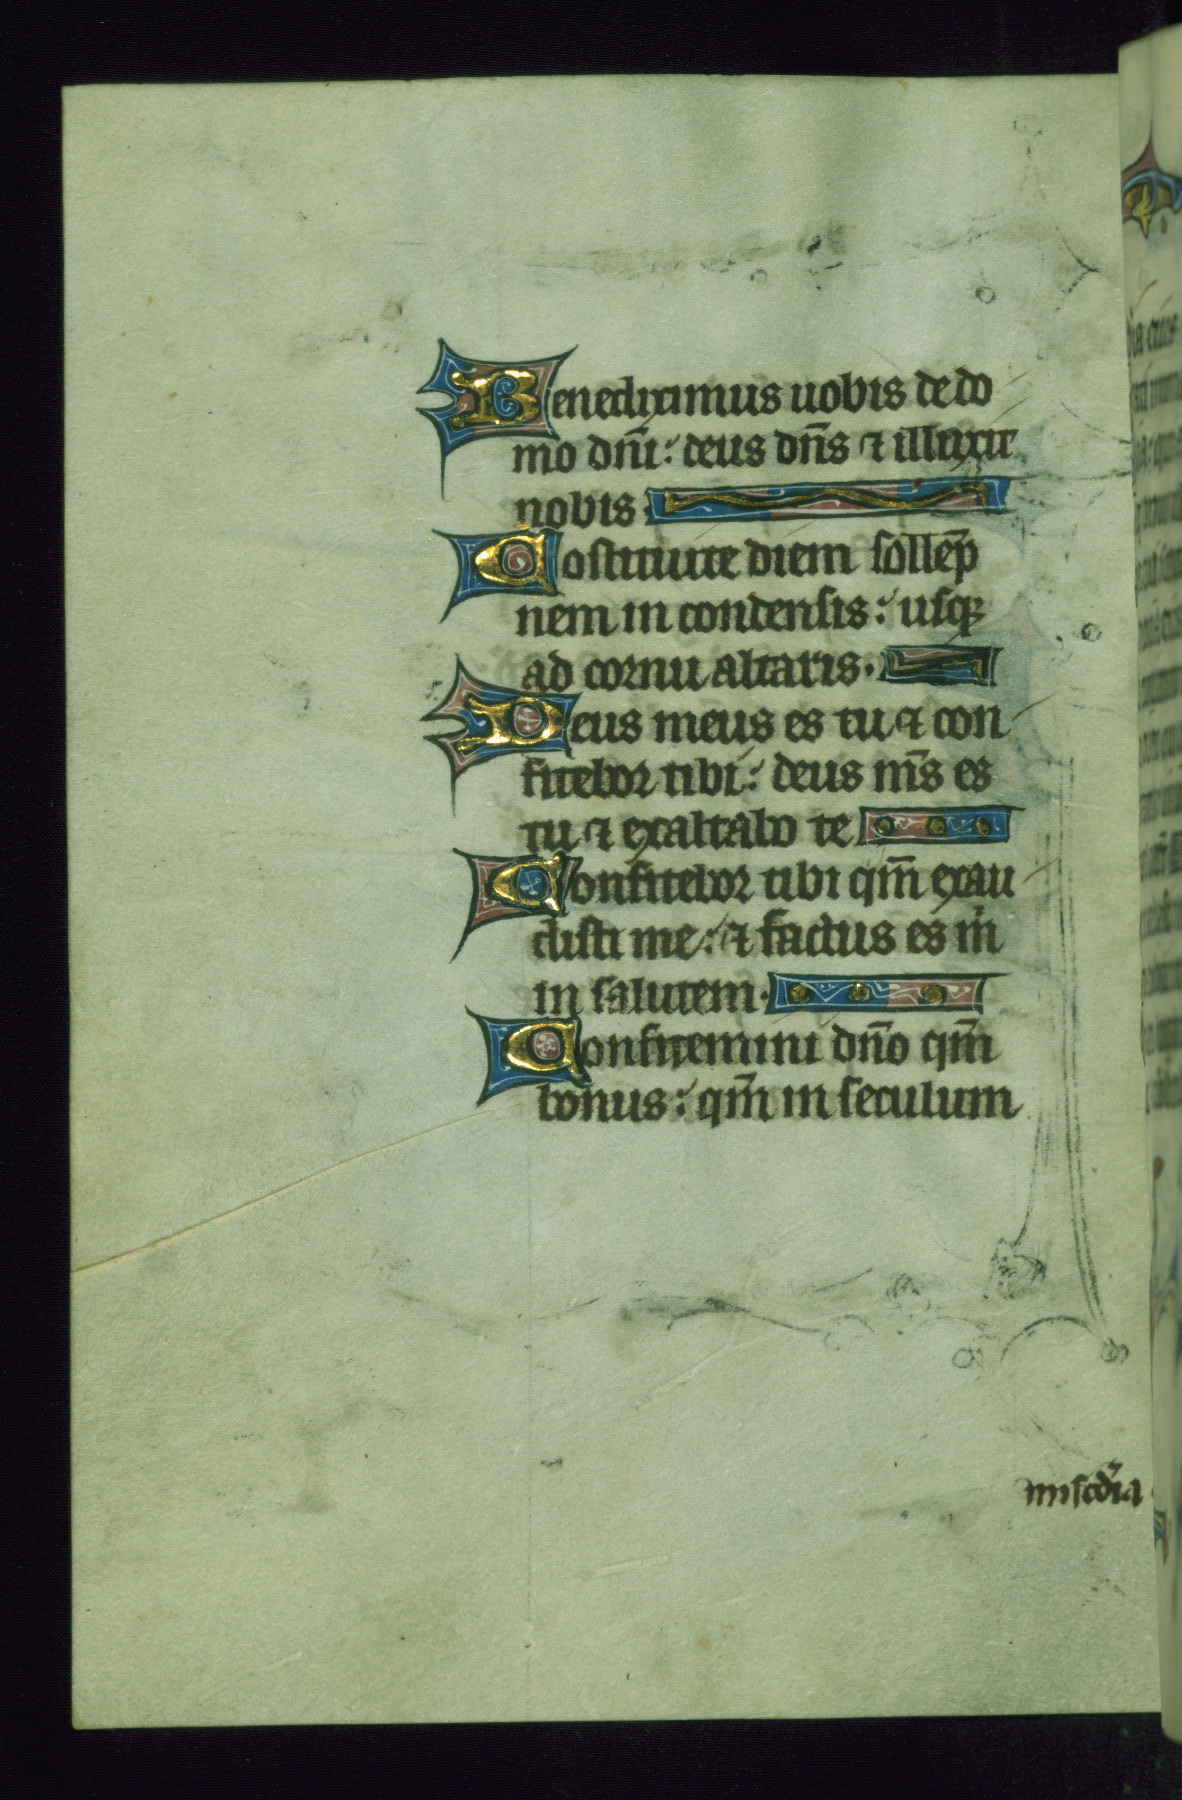 Benediximus uobis de do
mo dn̄i: deus dn̄s ⁊ illuxit
nobis.
Constituite diem sollēp
nem in condensis: usq;
ad cornu altaris.
Deus meus es tu ⁊ con
fitebor tibi: deus m̄s es
tu ⁊ exaltabo te
Confitebor tibi qm̄ exau
disti me: ⁊ factus es m̄
in salutem.
Confitemini dn̄o qm̄
bonus: qm̄ in seculum